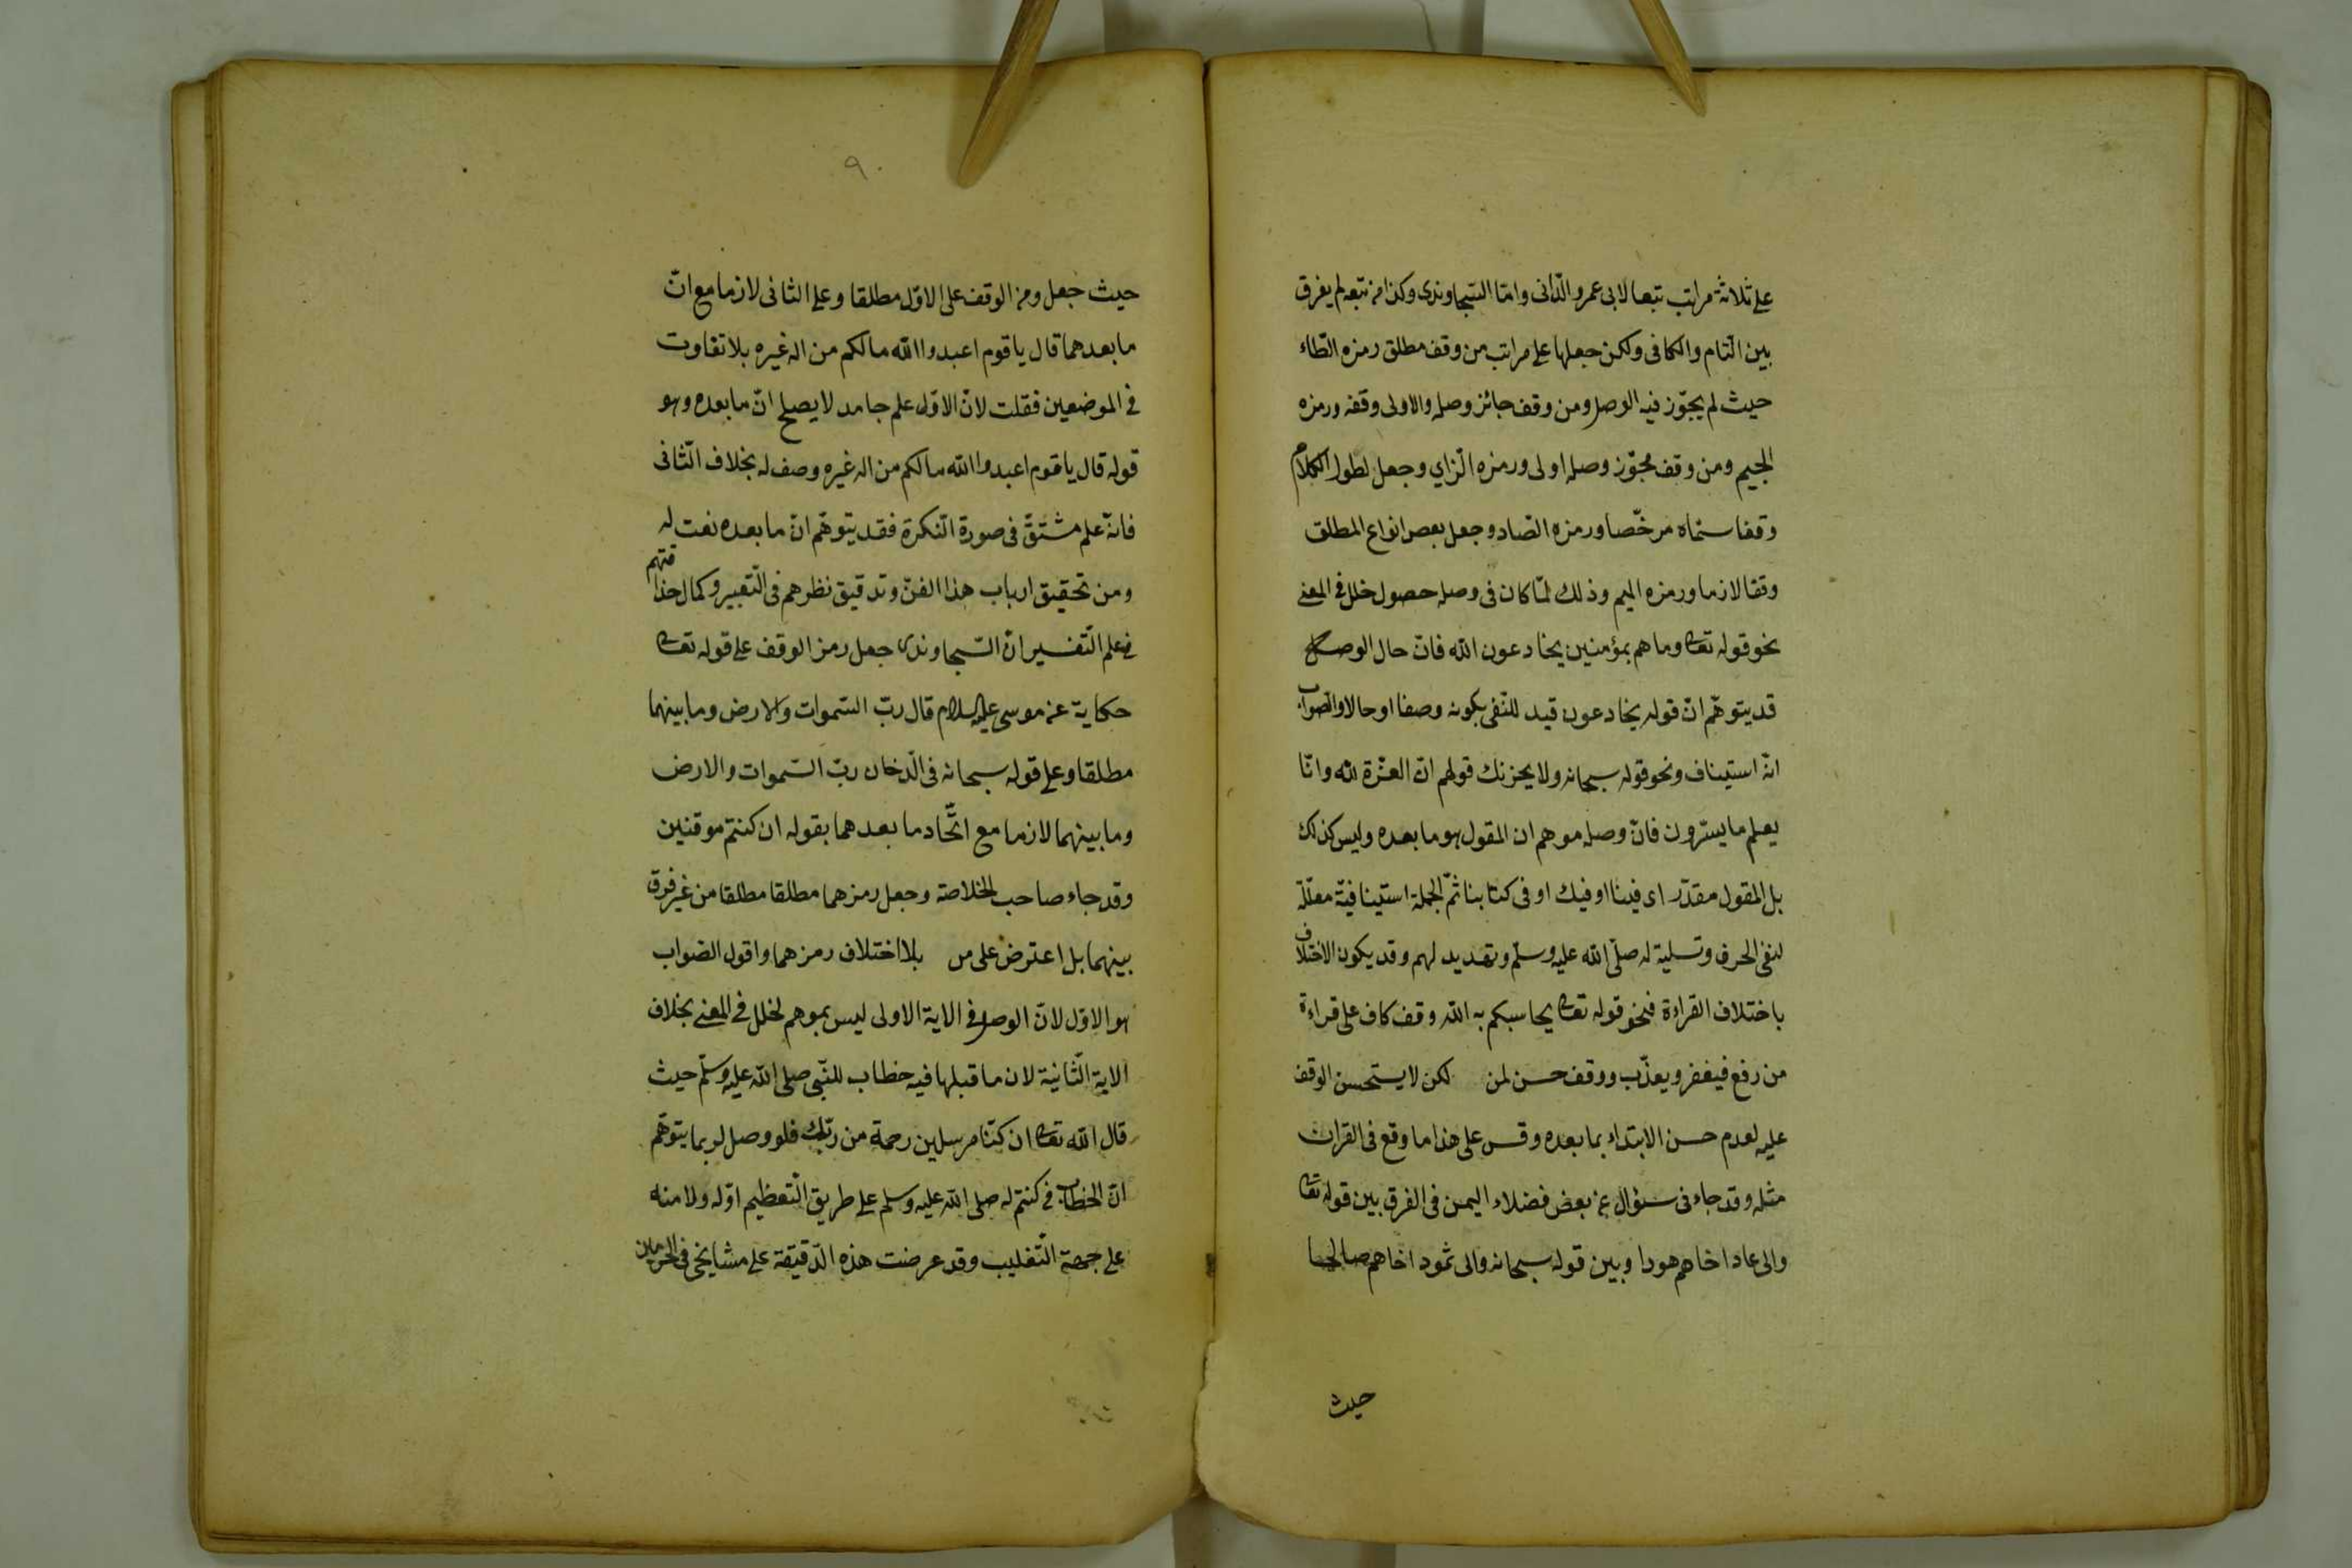 على ثلاثة مراتب تبعا لابى عمرو الدّانى وامّا السّجاوندى وكذا من تبعه لم يفرق
بين التّام والكافى ولكن جعلها على مراتب من وقف مطلق رمزه الطّاء
حيث لم يجوّز فيه الوصل ومن وقف جائز وصله والاولى وقفه ورمزه
الجيم ومن وقف مجوّز وصله اولى ورمزه الزّاي وجعل لطول الكلام
وقفا سمّاه مرخّصا ورمزه الصّاد وجعل بعض انواع المطلق
وقفا لازما ورمزه الميم وذلك لمّا كان فى وصله حصول خلل فى المعنى
نحو قوله تعا وما هم بمؤمنين يخادعون الله فانّ حال الوصل
قد يتوهّم انّ قوله يخادعون قيد للنّفى بكونه وصفا او حالا والصّواب
انّه استيناف ونحو قوله سبحانه ولا يحزنك قولهم انّ العزّة لله وانّا
يعلم ما يسرّون فانّ وصله موهم ان المقول هو ما بعده وليس كذلك
بل المقول مقدّر اى فينا او فيك او فى كتابنا ثمّ الجملة استينافيّة معلّلة
لنفى الحزن وتسلية له صلّى الله عليه وسلّم وتهديد لهم وقد يكون الاختلاف
باختلاف القراءة فنحو قوله تعا يحاسبكم به الله وقف كاف على قراءة
من رفع فيغفر ويعذّب ووقف حسن لمن لكن لا يستحسن الوقف
عليه لعدم حسن الابتداء بما بعده وقس على هذا ما وقع فى القران
مثله وقد جاء نى سئوال عن بعض فضلاء اليمن فى الفرق بين قوله تعا
والى عاد اخاهم هودا وبين قوله سبحانه والى ثمود اخاهم صالحا
حيث
٩٠
حيث جعل رمز الوقف على الاوّل مطلقا وعلى الثانى لازما مع انّ
ما بعدهما قال يا قوم اعبدوا الله مالكم من اله غيره بلا تفاوت
فى الموضعين فقلت لانّ الاوّل علم جامد لا يصلح انّ ما بعده وهو
قوله قال يا قوم اعبدوا الله مالكم من اله غيره وصف له بخلاف الثّانى
فانّه علم مشتقّ فى صورة النّكرة فقد يتوهّم انّ ما بعده نعت له
ومن تحقيق ارباب هذا الفنّ وتدقيق نظرهم فى التّعبير وكمال حذاقتهم
فى علم التّفسير انّ السّجاوندى جعل رمز الوقف على قوله تعا
حكاية عن موسى عليه السلام قال ربّ السّموات والارض وما بينهما
مطلقا وعلى قوله سبحانه فى الدّخان ربّ السّموات والارض
وما بينهما لازما مع اتّحاد ما بعدهما بقوله ان كنتم موقنين
وقد جاء صاحب الخلاصة وجعل رمزهما مطلقا مطلقا من غير فرق
بينهما بل اعترض على من بلا اختلاف رمزهما واقول الصّواب
هو الاوّل لانّ الوصل فى الاية الاولى ليس بموهم لخلل فى المعنى بخلاف
الاية الثّانية لان ما قبلها فيه خطاب للنّبى صلى الله عليه وسلّم حيث
قال الله تعا ان كنّا مرسلين رحمة من ربّك فلو وصل لربما يتوهّم
انّ الخطاب فى كنتم له صلى الله عليه وسلم على طريق التّعظيم اوّله ولامته
على جهة التّغليب وقد عرضت هذه الدّقيقة على مشايخى فى الحرمين